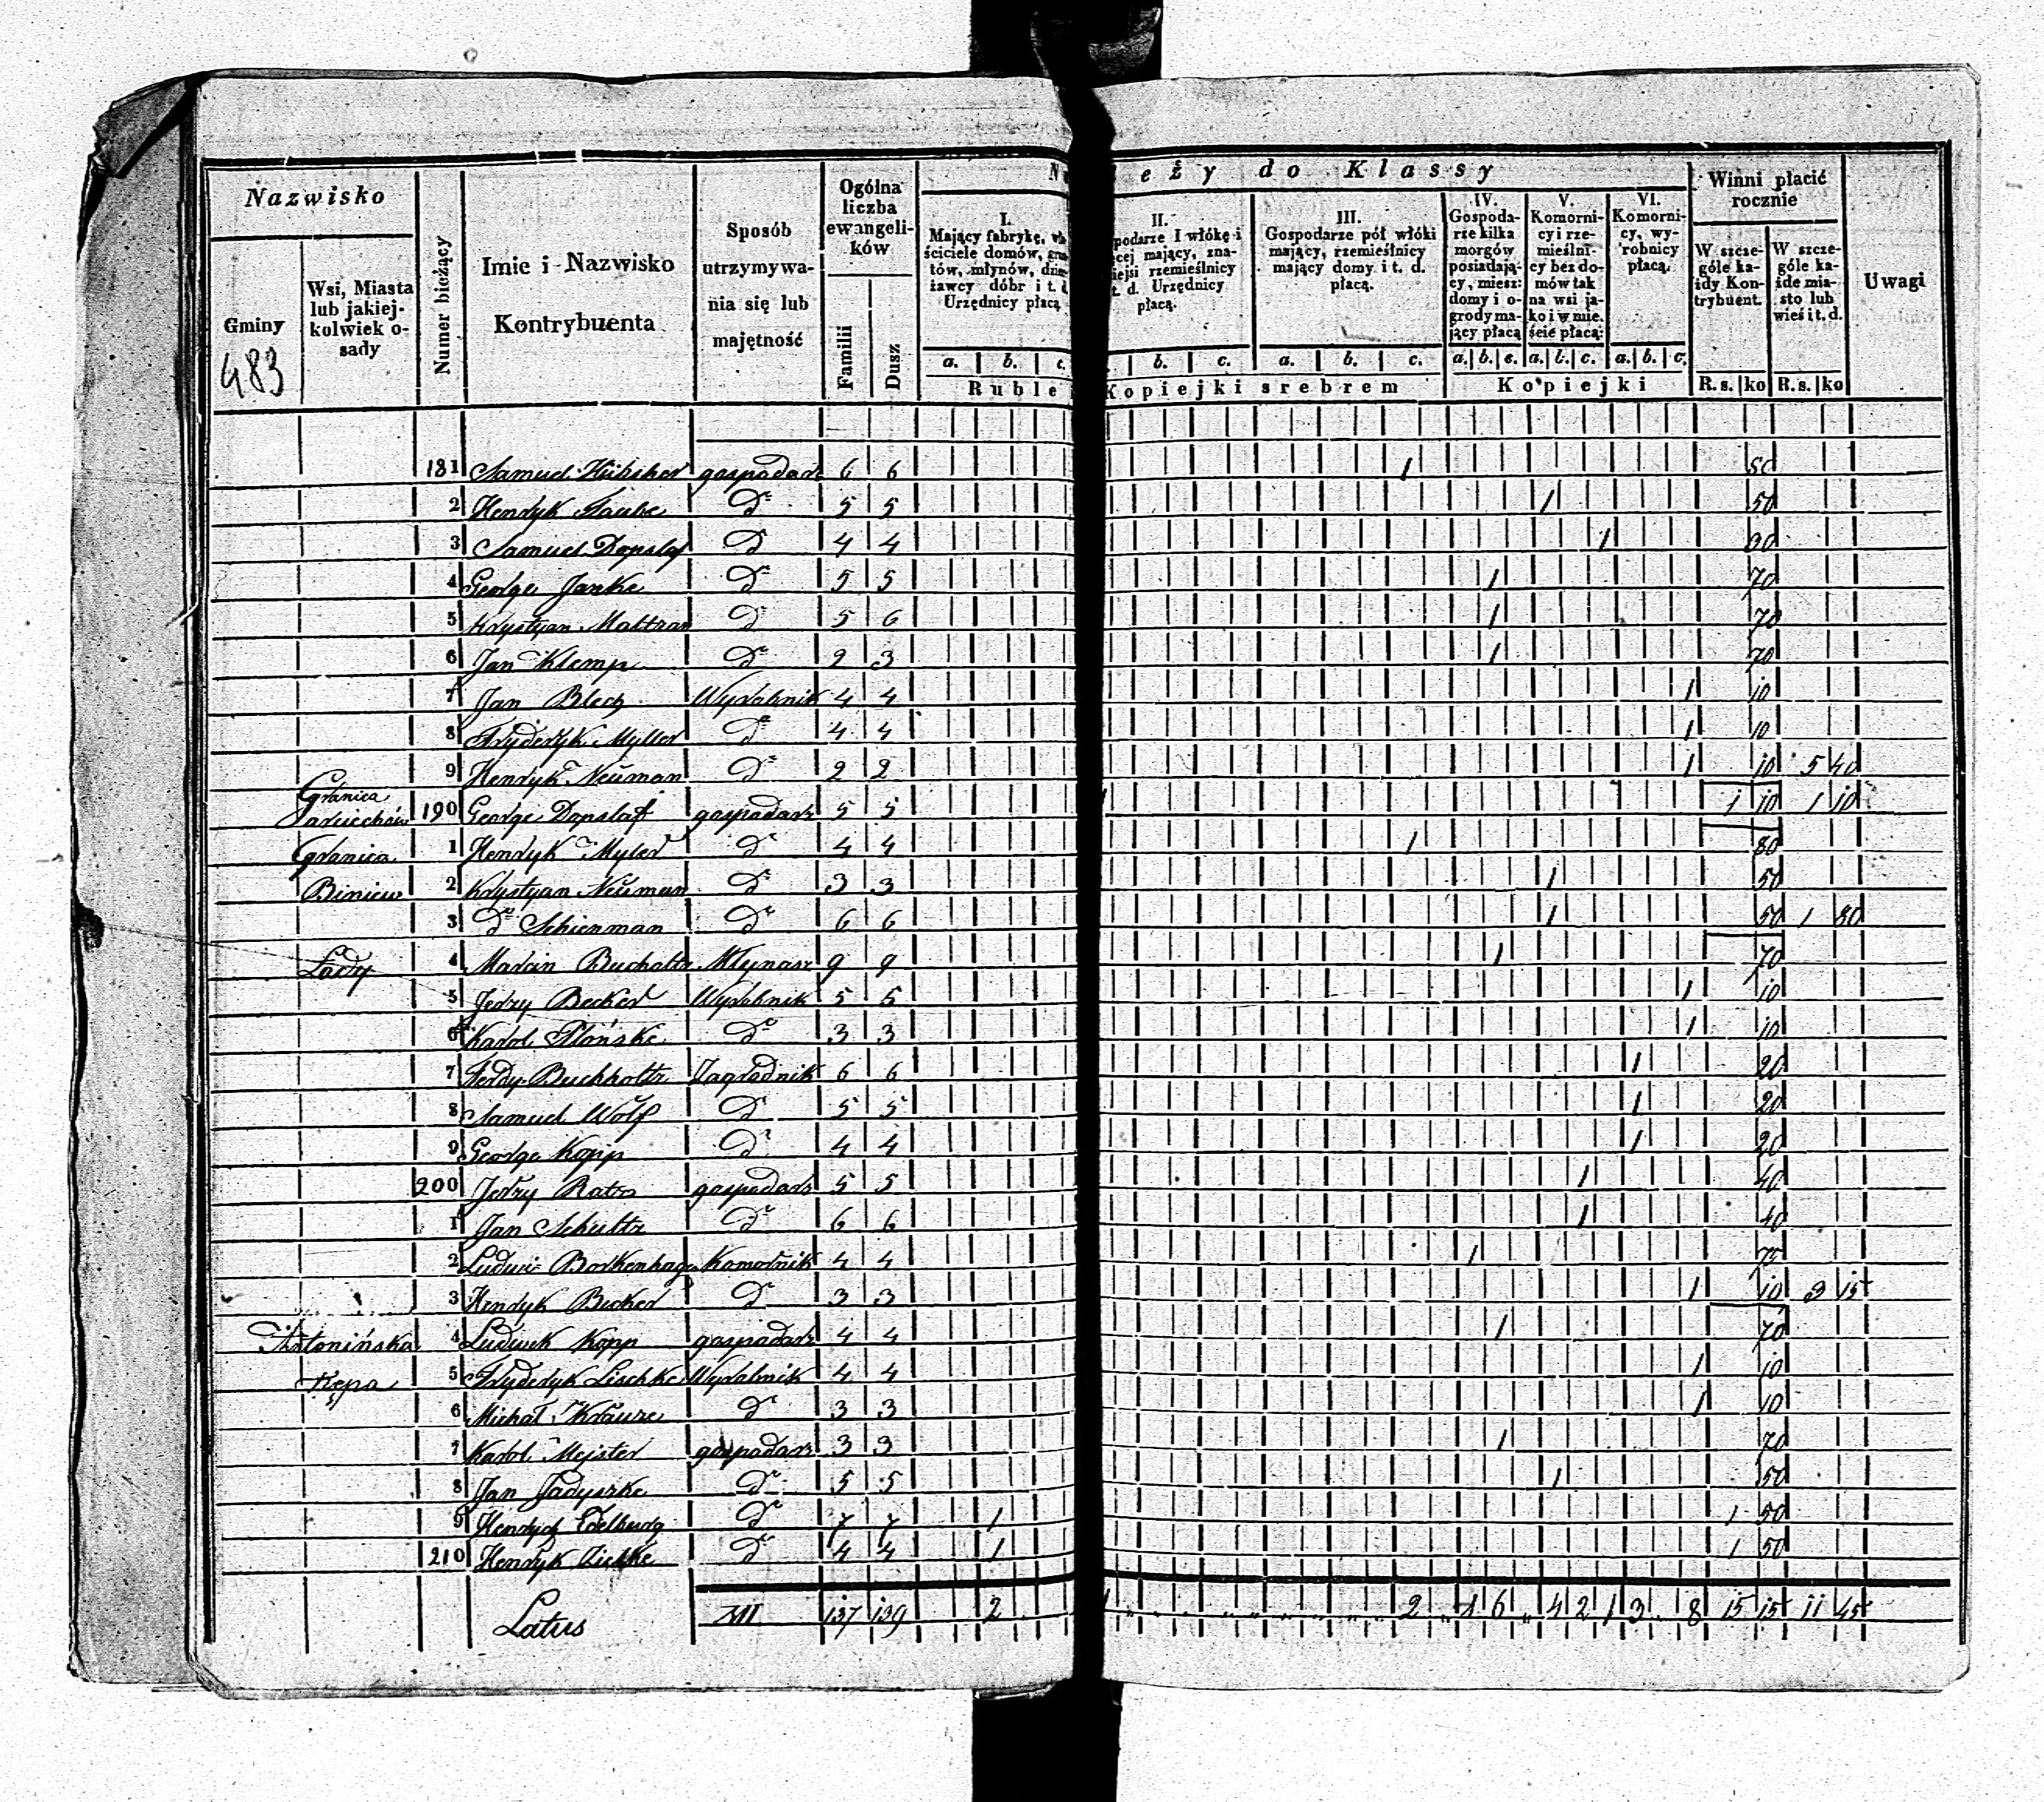 Nazwisko
Gminy
483
Wsi, Miasta
lub jakiej-
kolwiek o-
sady
Numer bieżący
Imie i Nazwisko
Kontrybuenta
Sposób
utrzymywa-
nia się lub
majętność
Ogólna
liczba
ewangeli-
ków
Familii
Dusz
eży do Klassy
I.
Mający fabrykę,
ściciele domów,
tów, młynów,
żawcy dóbr i t.
Urzędnicy płacą
II.
I włókę i
mający, zna-
rzemieślnicy
t. d. Urzędnicy
płacą.
III.
Gospodarze pół włóki
mający, rzemieślnicy
mający domy i t. d.
płacą.
IV.
Gospoda-
rze kilka
morgów
posiadają-
cy, miesz:
domy i o-
grody ma-
jący płacą
V.
Komorni-
cy i rze-
mieślni-
cy bez do-
mów tak
na wsi ja-
ko i w mie.
ście płacą:
VI.
Komorni-
cy, wy-
robnicy
płacą.
Winni płacić
rocznie
W szcze-
góle ka-
żdy Kon-
trybuent.
W szcze-
góle ka-
żde mia-
sto lub
wieś i t. d.
Uwagi
a. b. c. b. c. a. b. c. a. b. c. a. b. c. a. b. c.
Ruble Kopiejki srebrem Kopiejki R.s. ko R.s. ko
181 Samuel gospodarz 6 6 1
2 Henryk Taube Do 5 5 1 50
3 Samuel Dopslaf Do 4 4 1
4 George Janke Do 5 5 1 70
5 Krystyan Do 5 6 1 70
6 Jan Klemp Do 2 3 1 70
7 Jan Blech Wyrobnik 4 4 1 10
8 Fryderyk Myller Do 4 4 1 10
9 Henryk Neuman Do 2 2 1 10 5 40
Granica
190 George Dopslaf gospodarz 5 5 1 10 1 10
Granica 1 Henryk Myler Do 4 4 1 80
Biniew 2 Krystyan Neuman Do 3 3 1 50
3 Do Schierman Do 6 6 1 50 1 80
Łady 4 Marcin Bucholtz Młynarz 9 9 1 70
5 Jerzy Becker Wyrobnik 5 5 1 10
6 Karol Płońske Do 3 3 1 10
7 Ferdy Buchholtz Zagrodnik 6 6 1 20
8 Samuel Wolf Do 5 5 1 20
9 George Kopp Do 4 4 1 20
200 Jerzy Ratz gospodarz 5 5 1 40
1 Jan Schultz Do 6 6 1 40
2 Ludwi= Borkenhage Komornik 4 4 1
3 Henryk Becker Do 3 3 1 10 3 15
Antonińska 4 Ludwik Kopp gospodarz 4 4 1 70
Kępa 5 Fryderyk Lischke Wyrobnik 4 4 1 10
6 Michał Krauze Do 3 3 1 10
7 Karol Mejster gospodarz 3 3 1 70
8 Jan Do 5 5 1 50
9 Henrych Edelburg Do 7 7 1 1 50
210 Henryk Do 4 4 1 1 50
Latus 137 139 2 1 2 1 6 4 2 1 3 8 15 15 11 45